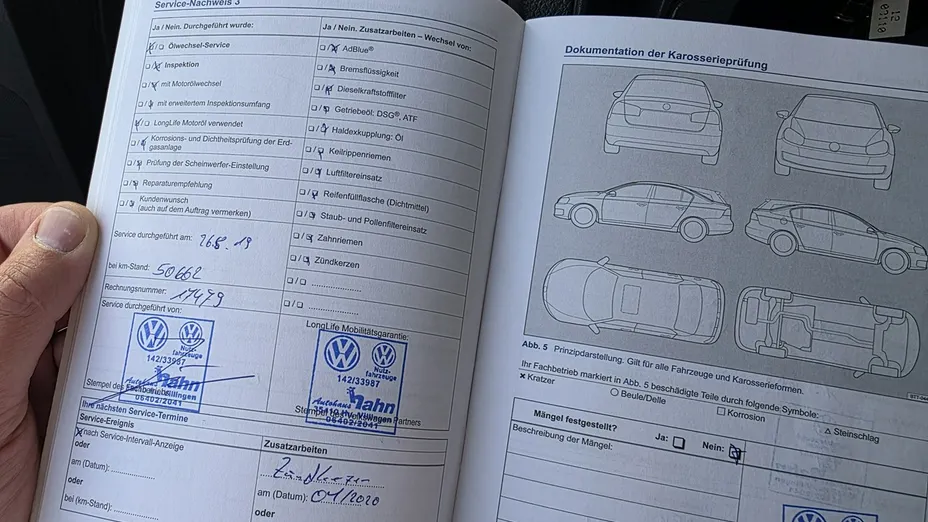 Service-Nachweis 3
Ja / Nein. Durchgeführt wurde:
☐/☐ Ölwechsel-Service
☐/☐ Inspektion
☐/☐ mit Motorölwechsel
☐/☐ mit erweitertem Inspektionsumfang
☐/☐ LongLife Motoröl verwendet
☐/☐ Korrosions- und Dichtheitsprüfung der Erd-
gasanlage
☐/☐ Prüfung der Scheinwerfer-Einstellung
☐/☐ Reparaturempfehlung
☐/☐ Kundenwunsch
(auch auf dem Auftrag vermerken)
Service durchgeführt am: 26.8.19
bei km-Stand: 50662
Rechnungsnummer: 17479
Service durchgeführt von:
Nutz-
fahrzeuge
142/33987
Autohaus
Hahn
Villingen
06402/2041
Stempel des Fachbetriebs
Ja / Nein. Zusatzarbeiten – Wechsel von:
☐/☐ AdBlue®
☐/☐ Bremsflüssigkeit
☐/☐ Dieselkraftstofffilter
☐/☐ Getriebeöl: DSG®, ATF
☐/☐ Haldexkupplung: Öl
☐/☐ Keilrippenriemen
☐/☐ Luftfiltereinsatz
☐/☐ Reifenfüllflasche (Dichtmittel)
☐/☐ Staub- und Pollenfiltereinsatz
☐/☐ Zahnriemen
☐/☐ Zündkerzen
☐/☐ ....................
☐/☐ ....................
LongLife Mobilitätsgarantie:
Nutz-
fahrzeuge
142/33987
Autohaus
Hahn
35410 Hu.-Villingen
06402/2041
Stempel des Volkswagen Partners
Ihre nächsten Service-Termine
Service-Ereignis
nach Service-Intervall-Anzeige
oder
am (Datum): ...............
oder
bei (km-Stand): ...............
Zusatzarbeiten
am (Datum): 01/2020
oder
Dokumentation der Karosserieprüfung
Abb. 5 Prinzipdarstellung. Gilt für alle Fahrzeuge und Karosserieformen.
Ihr Fachbetrieb markiert in Abb. 5 beschädigte Teile durch folgende Symbole:
× Kratzer ○ Beule/Delle ☐ Korrosion △ Steinschlag
Mängel festgestellt? Ja: ☐ Nein: ☒
Beschreibung der Mängel: